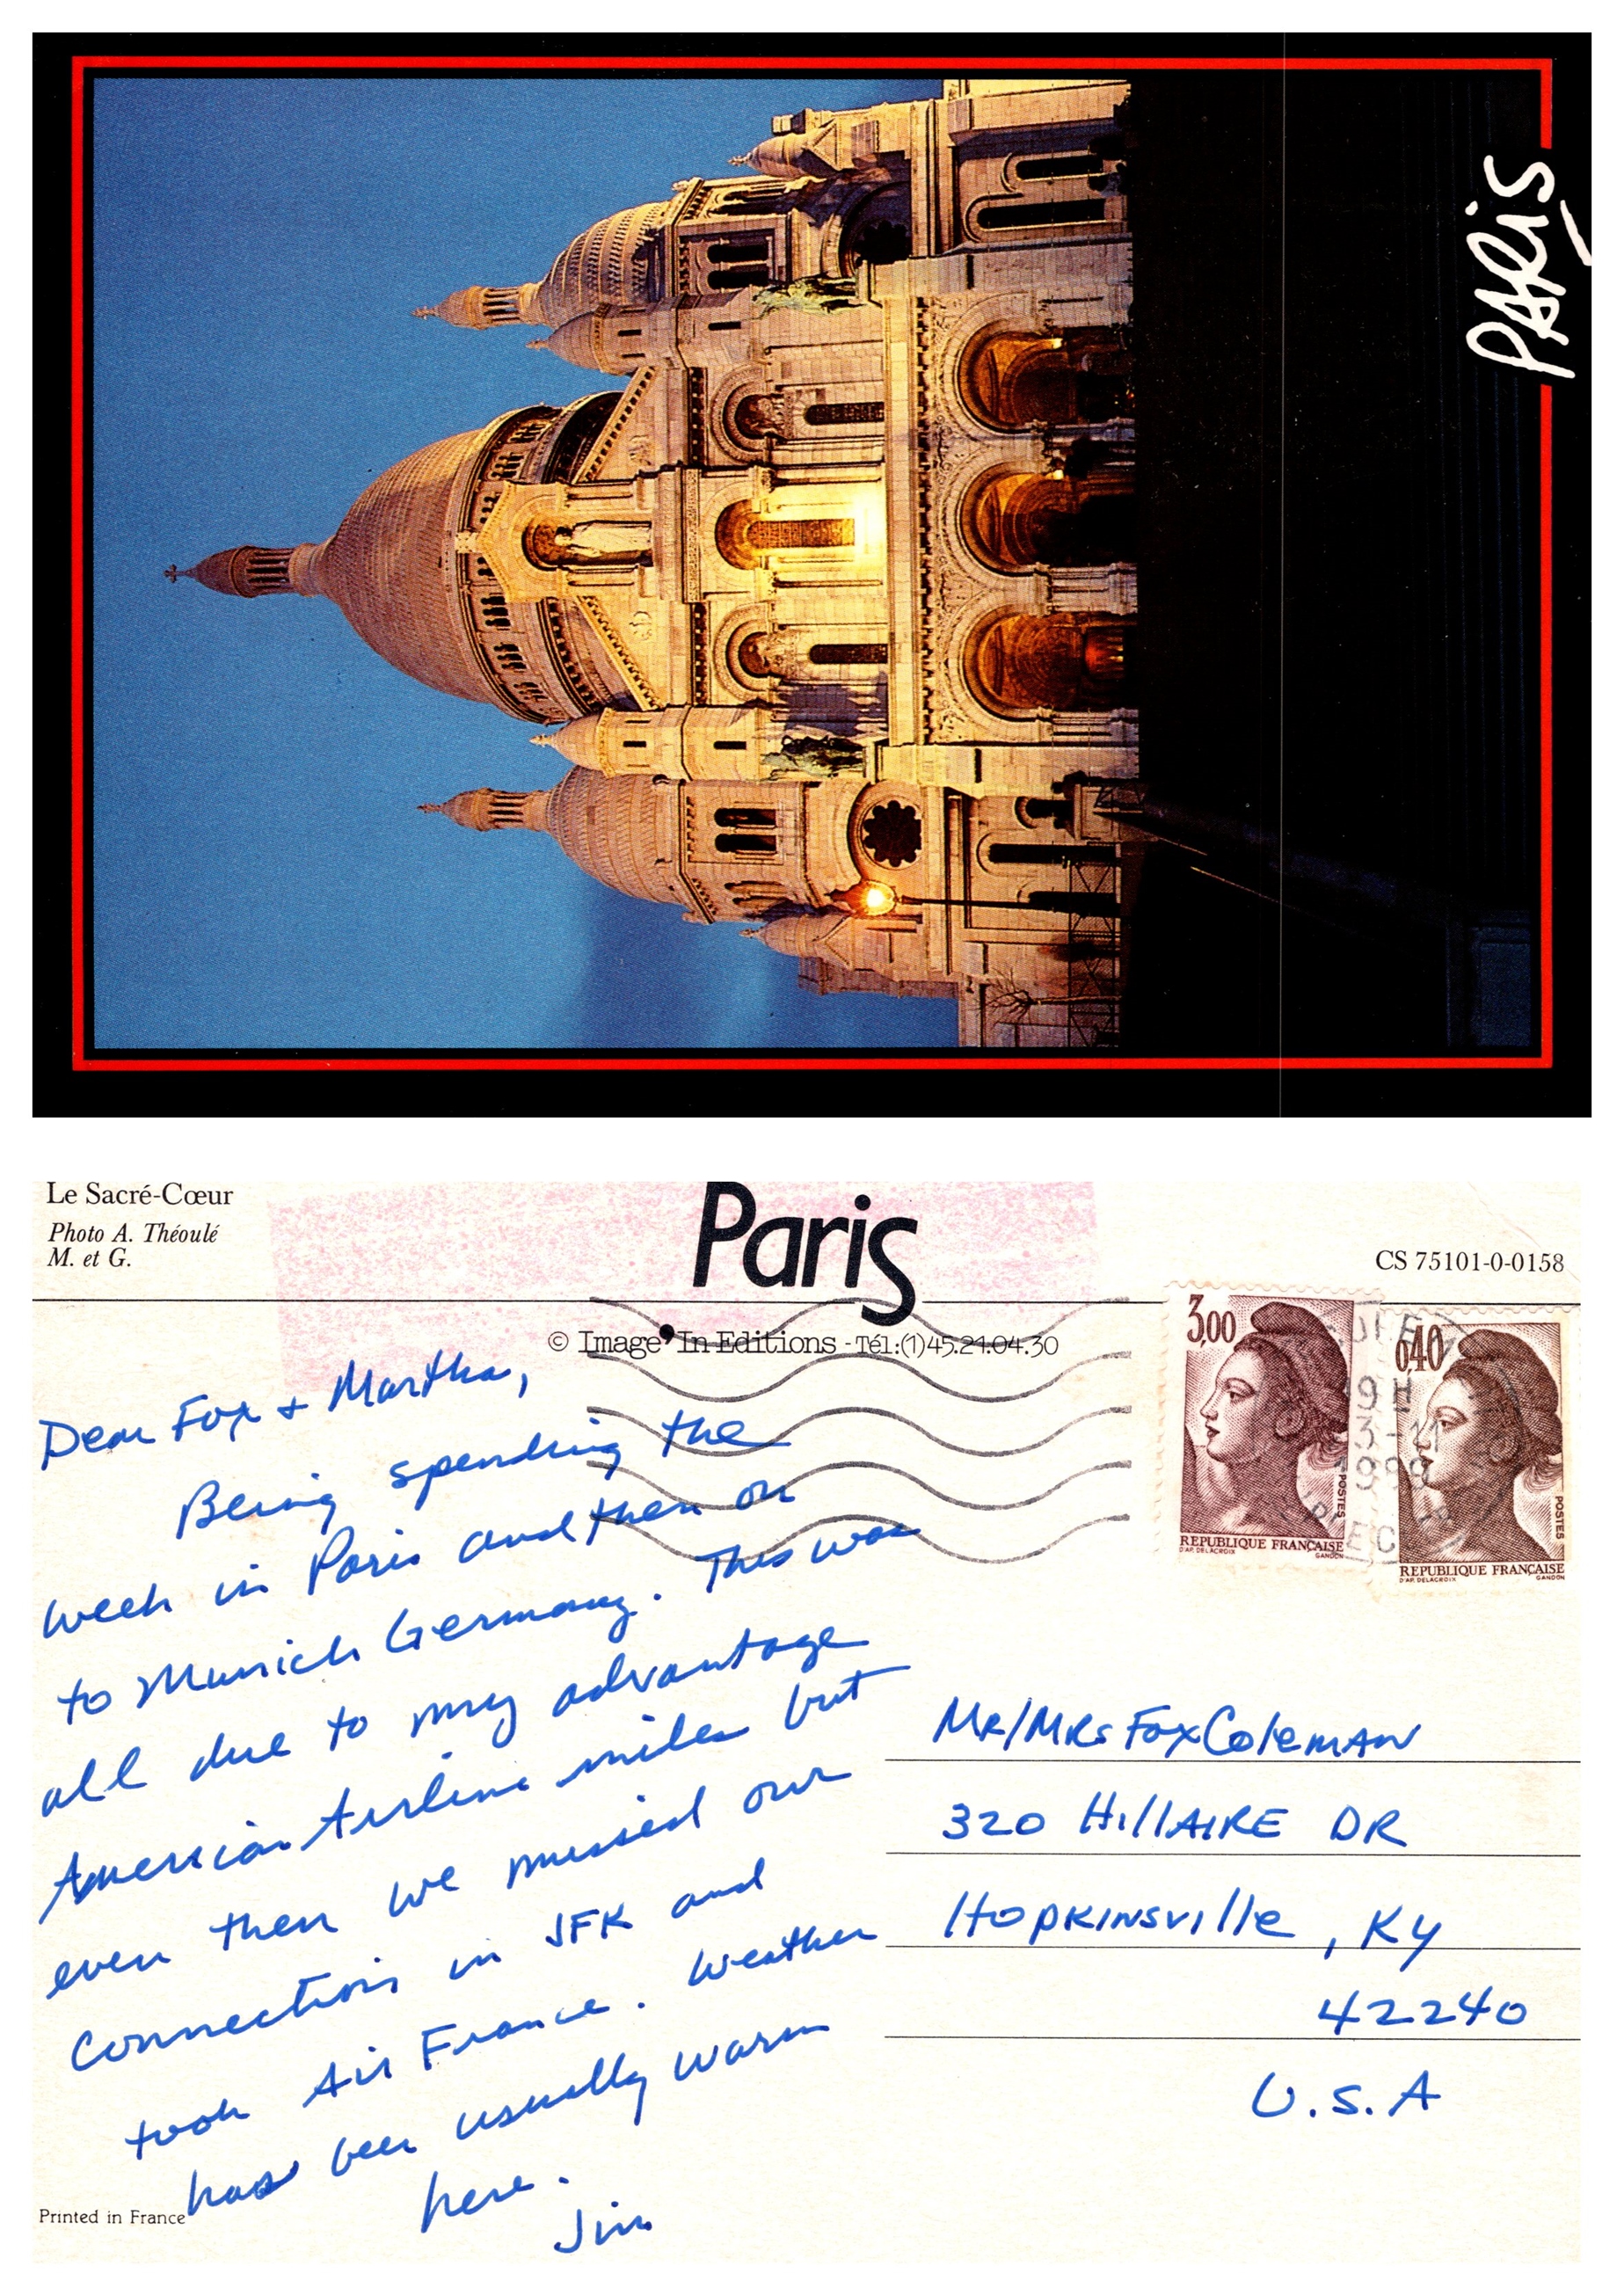 PARiS
Le Sacré-Cœur
Photo A. Théoulé
M. et G.
Paris
CS 75101-0-0158
© Image'In Editions - Tél:(1)45.21.04.30
3,00
POSTES
REPUBLIQUE FRANÇAISE
D'AP. DELACROIX GANDON
0,40
POSTES
REPUBLIQUE FRANÇAISE
D'AP. DELACROIX GANDON
19H
3-11
Dear Fox + Martha,
Being spending the
week in Paris and then on
to Munich Germany. This was
all due to my advantage
American Airline miles but
even then we missed our
connections in JFK and
took Air France. Weather
has been usually warm
here.
Jim
Mr/Mrs Fox Coleman
320 Hillaire DR
Hopkinsville, Ky
42240
U.S.A
Printed in France